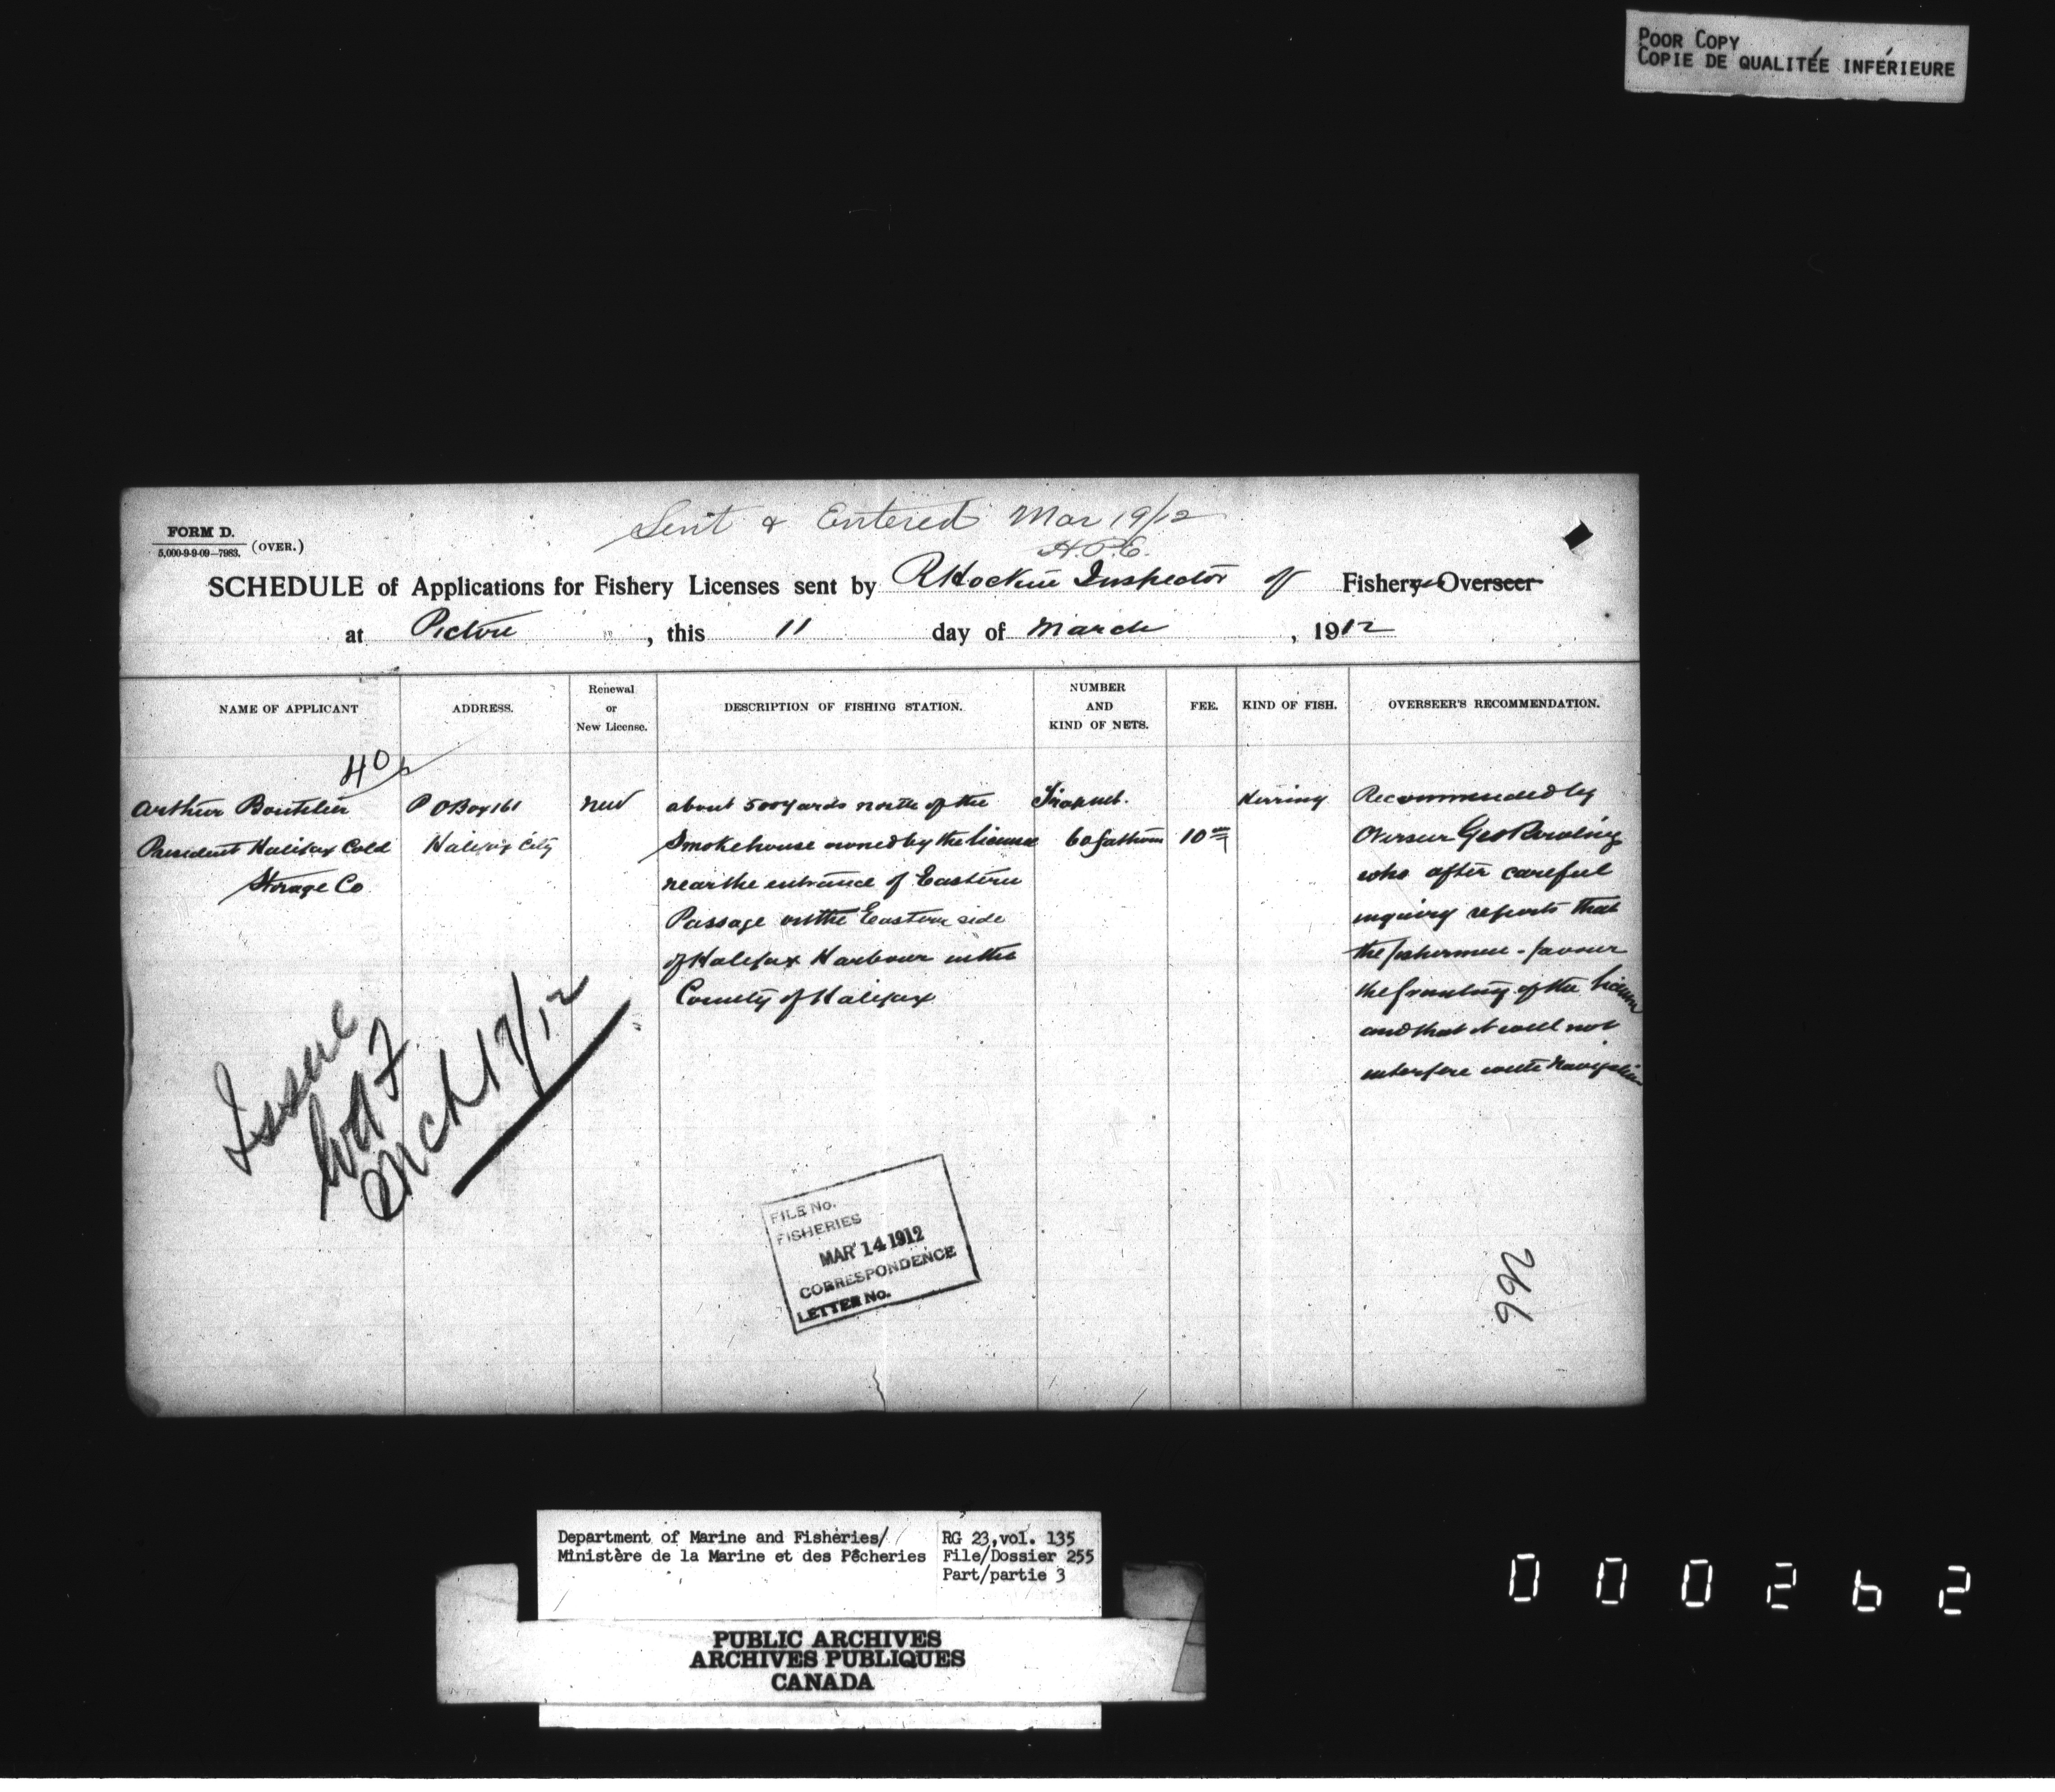 POOR COPY
COPIE DE QUALITÉE INFÉRIEURE
Sent & Entered Mar 19/12
H.P.E.
FORM D.
5,000-9-9-09—7983.
(OVER.)
SCHEDULE of Applications for Fishery Licenses sent by R Hockin Inspector of Fishery Overseer
at Pictou , this 11 day of March , 1912
NAME OF APPLICANT
ADDRESS.
Renewal
or
New License.
DESCRIPTION OF FISHING STATION.
NUMBER
AND
KIND OF NETS.
FEE.
KIND OF FISH.
OVERSEER'S RECOMMENDATION.
40
Arthur Boutilier
President Halifax Cold
Storage Co
P O Box 161
Halifax City
new
about 500 yards north of the
Smokehouse owned by the licensee
near the entrance of Eastern
Passage on the Eastern side
of Halifax Harbour in the
County of Halifax
Trapnet.
60 fathom
10 00
Herring
Recommended by
Overseer Geo Rowlings
who after careful
inquiry reports that
the fishermen favour
the granting of the license
and that it will not
interfere with navigation
Issue
Mch 19/12
FILE No.
FISHERIES
MAR 14 1912
CORRESPONDENCE
LETTER No.
266
Department of Marine and Fisheries/
Ministère de la Marine et des Pêcheries
RG 23, vol. 135
File/Dossier 255
Part/partie 3
PUBLIC ARCHIVES
ARCHIVES PUBLIQUES
CANADA
000262